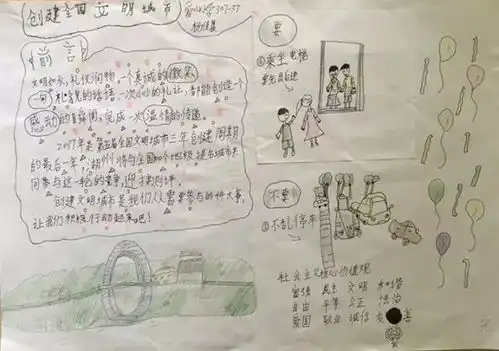 创建全国文明城市
爱山小学307-37
前言
文明如水，礼仪润物，一个真诚的微笑
一句礼貌的话语，一次小小的礼让，都能创造一个
感动的瞬间，完成一次温情的传递。
2017年是第五届全国文明城市三年创建周期
的最后一年，湖州将与全国90个地级提名城市共
同参与这一轮的竞争，迎接测评。
创建文明城市是我们人人需要参与的一件大事，
让我们积极行动起来吧！
要
①乘坐电梯
要先出后进
不要
①不乱停车
社会主义核心价值观
富强 民主 文明 和谐
自由 平等 公正 法治
爱国 敬业 诚信 友善